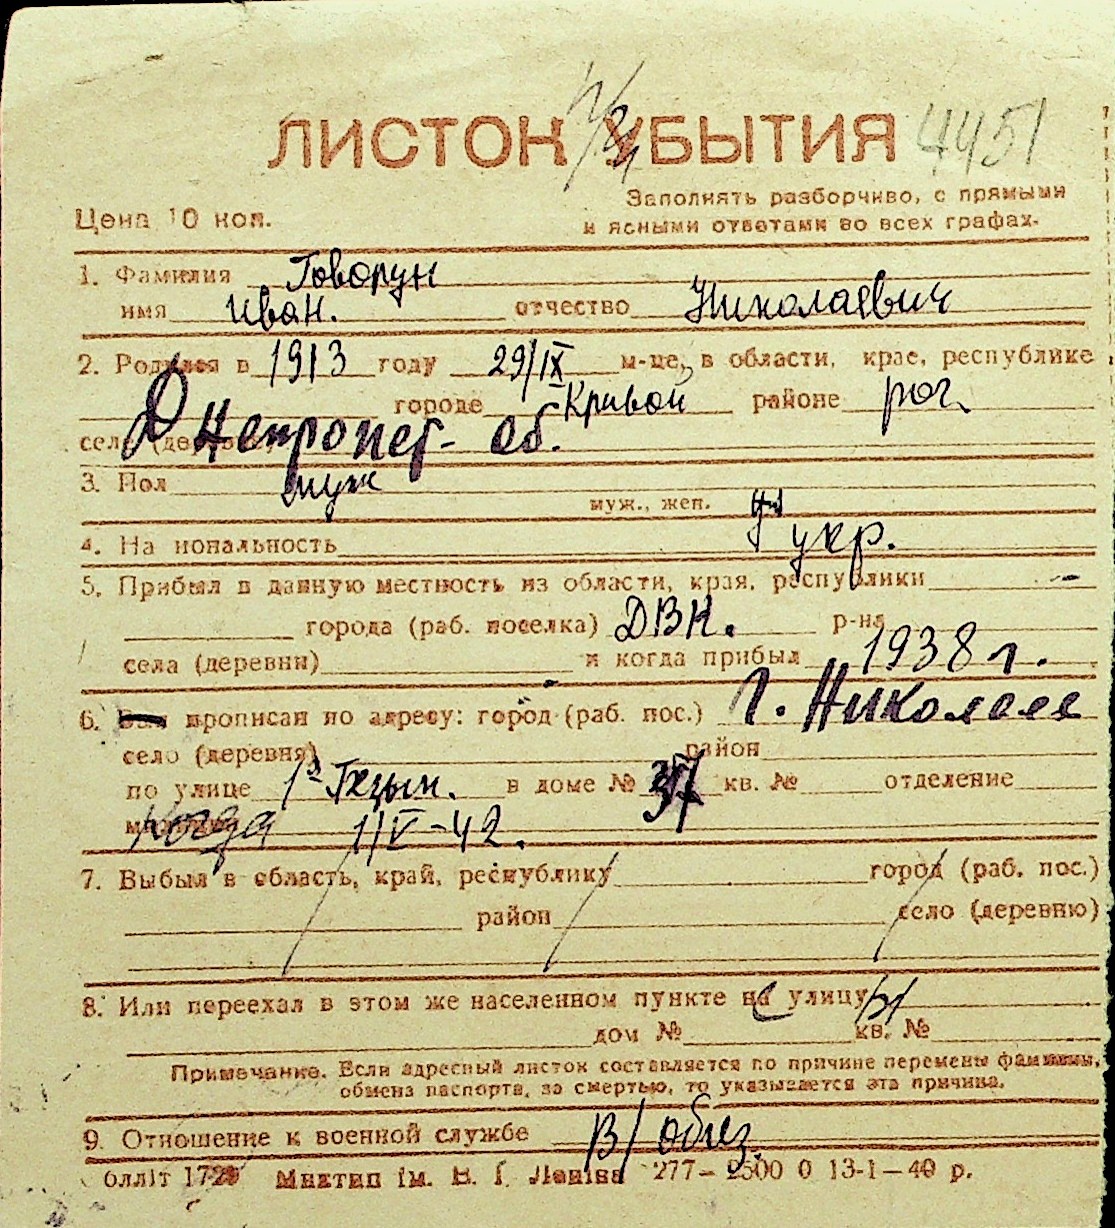 ЛИСТОК УБЫТИЯ 4451
Заполнять разборчиво, с прямыми
Цена 10 коп. и ясными ответами во всех графах.
1. Фамилия Говорун
имя Иван. отчество Николаевич
2. Родился в 1913 году 29/IX м-це, в области, крае, республике
городе Кривой районе рог.
село (деревня) Днепропет- об.
3. Пол муж муж., жен.
4. На иональность укр.
5. Прибыл в данную местность из области, края, республики -
города (раб. поселка) ДВК. р-на
села (деревни) и когда прибыл 1938 г.
6. Был прописан по адресу: город (раб. пос.) г. Николаев
село (деревня) район
по улице 1я в доме № 37 кв. № отделение
Когда 1/V-42.
7. Выбыл в область, край, республику город (раб. пос.)
район село (деревню)
8. Или переехал в этом же населенном пункте на улицу
дом № кв. №
Примечание. Если адресный листок составляется по причине перемены фамилии,
обмена паспорта, за смертью, то указывается эта причина.
9. Отношение к военной службе В/обяз.
олліт 172 Миктип ім. В. І. Леніна 277—2500 0 13-1—40 р.